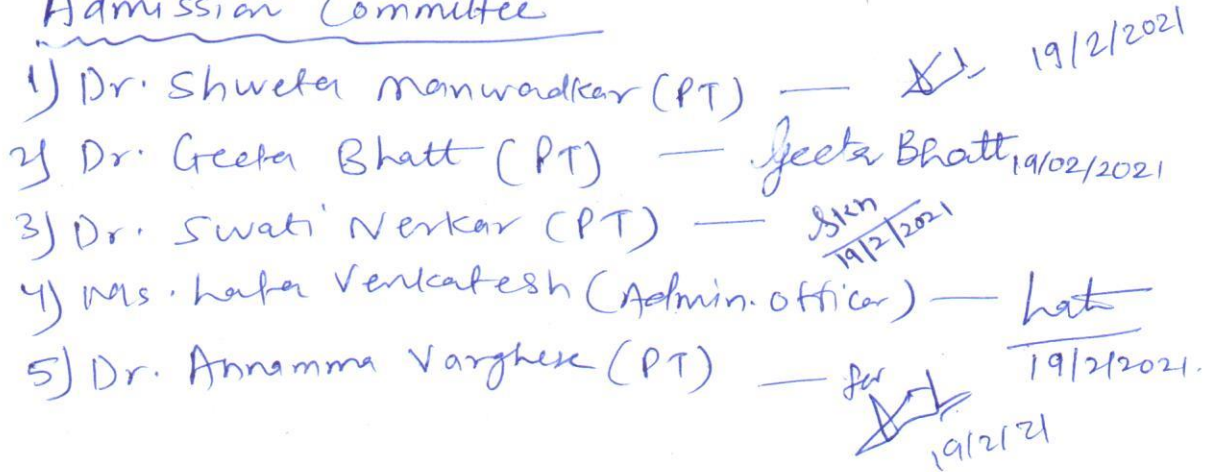 Admission Committee
1) Dr. Shweta Manwadkar (PT) — 19/2/2021
2) Dr. Geeta Bhatt (PT) — Geeta Bhatt 19/02/2021
3) Dr. Swati Nerkar (PT) — Skn 19/2/2021
4) Mrs. Lata Venkatesh (Admin. officer) — Lata 19/2/2021.
5) Dr. Annamma Varghese (PT) — for 19/2/21